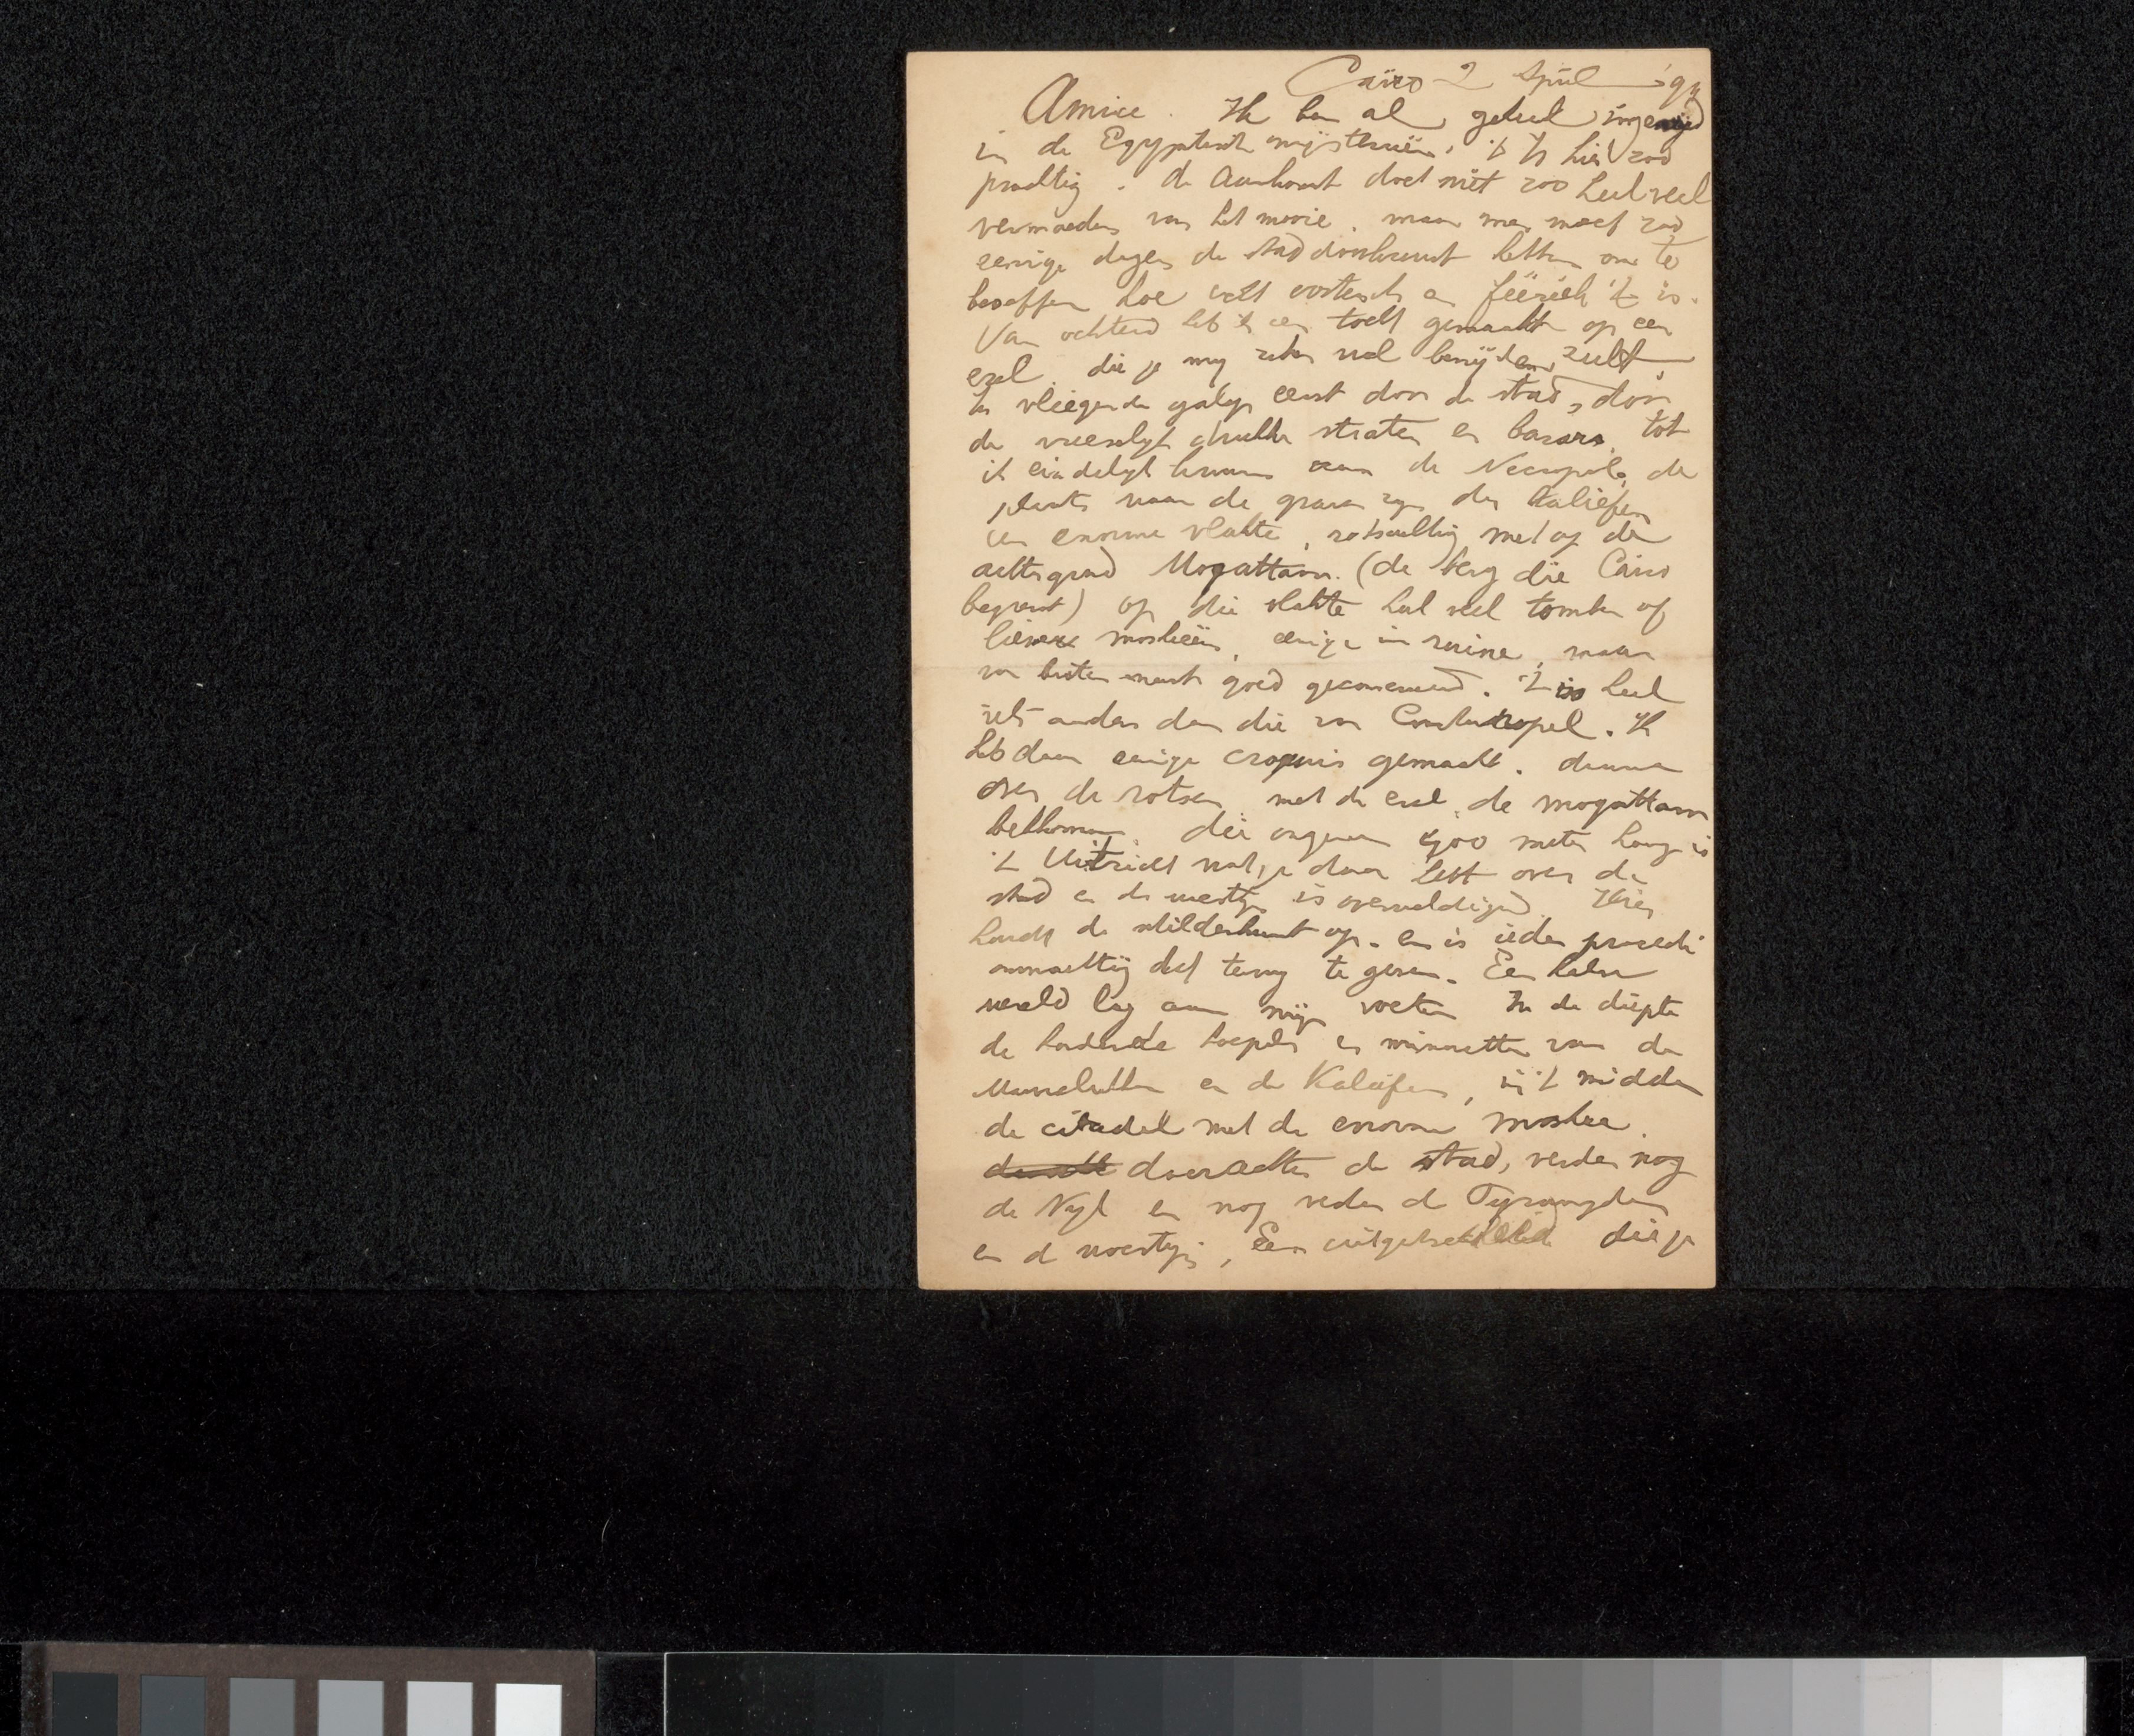 Caïro 2 April '9
Amice. Ik ben al geheel ingewijd
in de Egyptische mijsterieën, 't Is hier zoo
prachtig. de aankomst doet niet zoo heel veel
vermoeden van het mooie. maar men moet zoo
eenige dagen de stad doorkruist hebben om te
beseffen hoe echt oostersch en feëriek 't is.
Van ochtend heb ik een tocht gemaakt op een
ezel. die je my zeker wel benijden zult,
In vliegende galop eerst door de stad, door
de vreeselyk drukke straten en bazars, tot
ik eindelyk kwam aan de Necropole, de
plaats waar de graven zyn der Kaliefen
een enorme vlakte, rotsachtig met op den
achtergrond Mogattam. (de berg die Caïro
begrenst) op die vlakte heel veel tomben of
liever moskeeën, eenige in ruine, maar
van buiten meest goed geconserveerd. 't is heel
iets anders dan die van Constantinopel. Ik
heb daar eenige croquis gemaakt. daarna
over de rotsen met de ezel, de mogattam
beklommen. die ongeveer meter hoog is
't Uitzicht wat je daar hebt over de
stad en de woestyn is overweldigend. Hier
houdt de schilderkunst op. en is ieder procédé
onmachtig dat terug te geven. Een halve
wereld lag aan mijn voeten In de diepte
de honderde koepels en minaretten van de
Mamelukken en de Kaliefen, in 't midden
de citadel met de enorme moskee.
daarachter de stad, verder nog
de Nyl en nog verder de Pyramyden
en de woestyn, Een uitgestrektheid die je